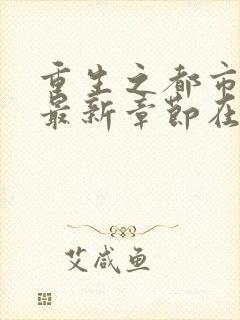 重生之都市
最新章节在
艾咸鱼